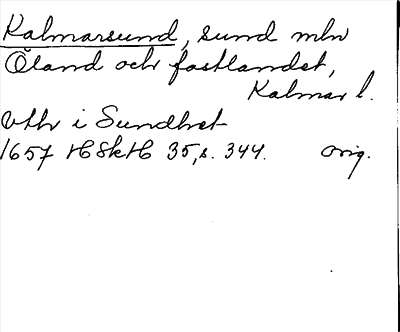 Kalmarsund, sund mln
Öland och fastlandet,
Kalmar l.
vthr i Sundhet
1657 HSkH 35, s. 344. orig.